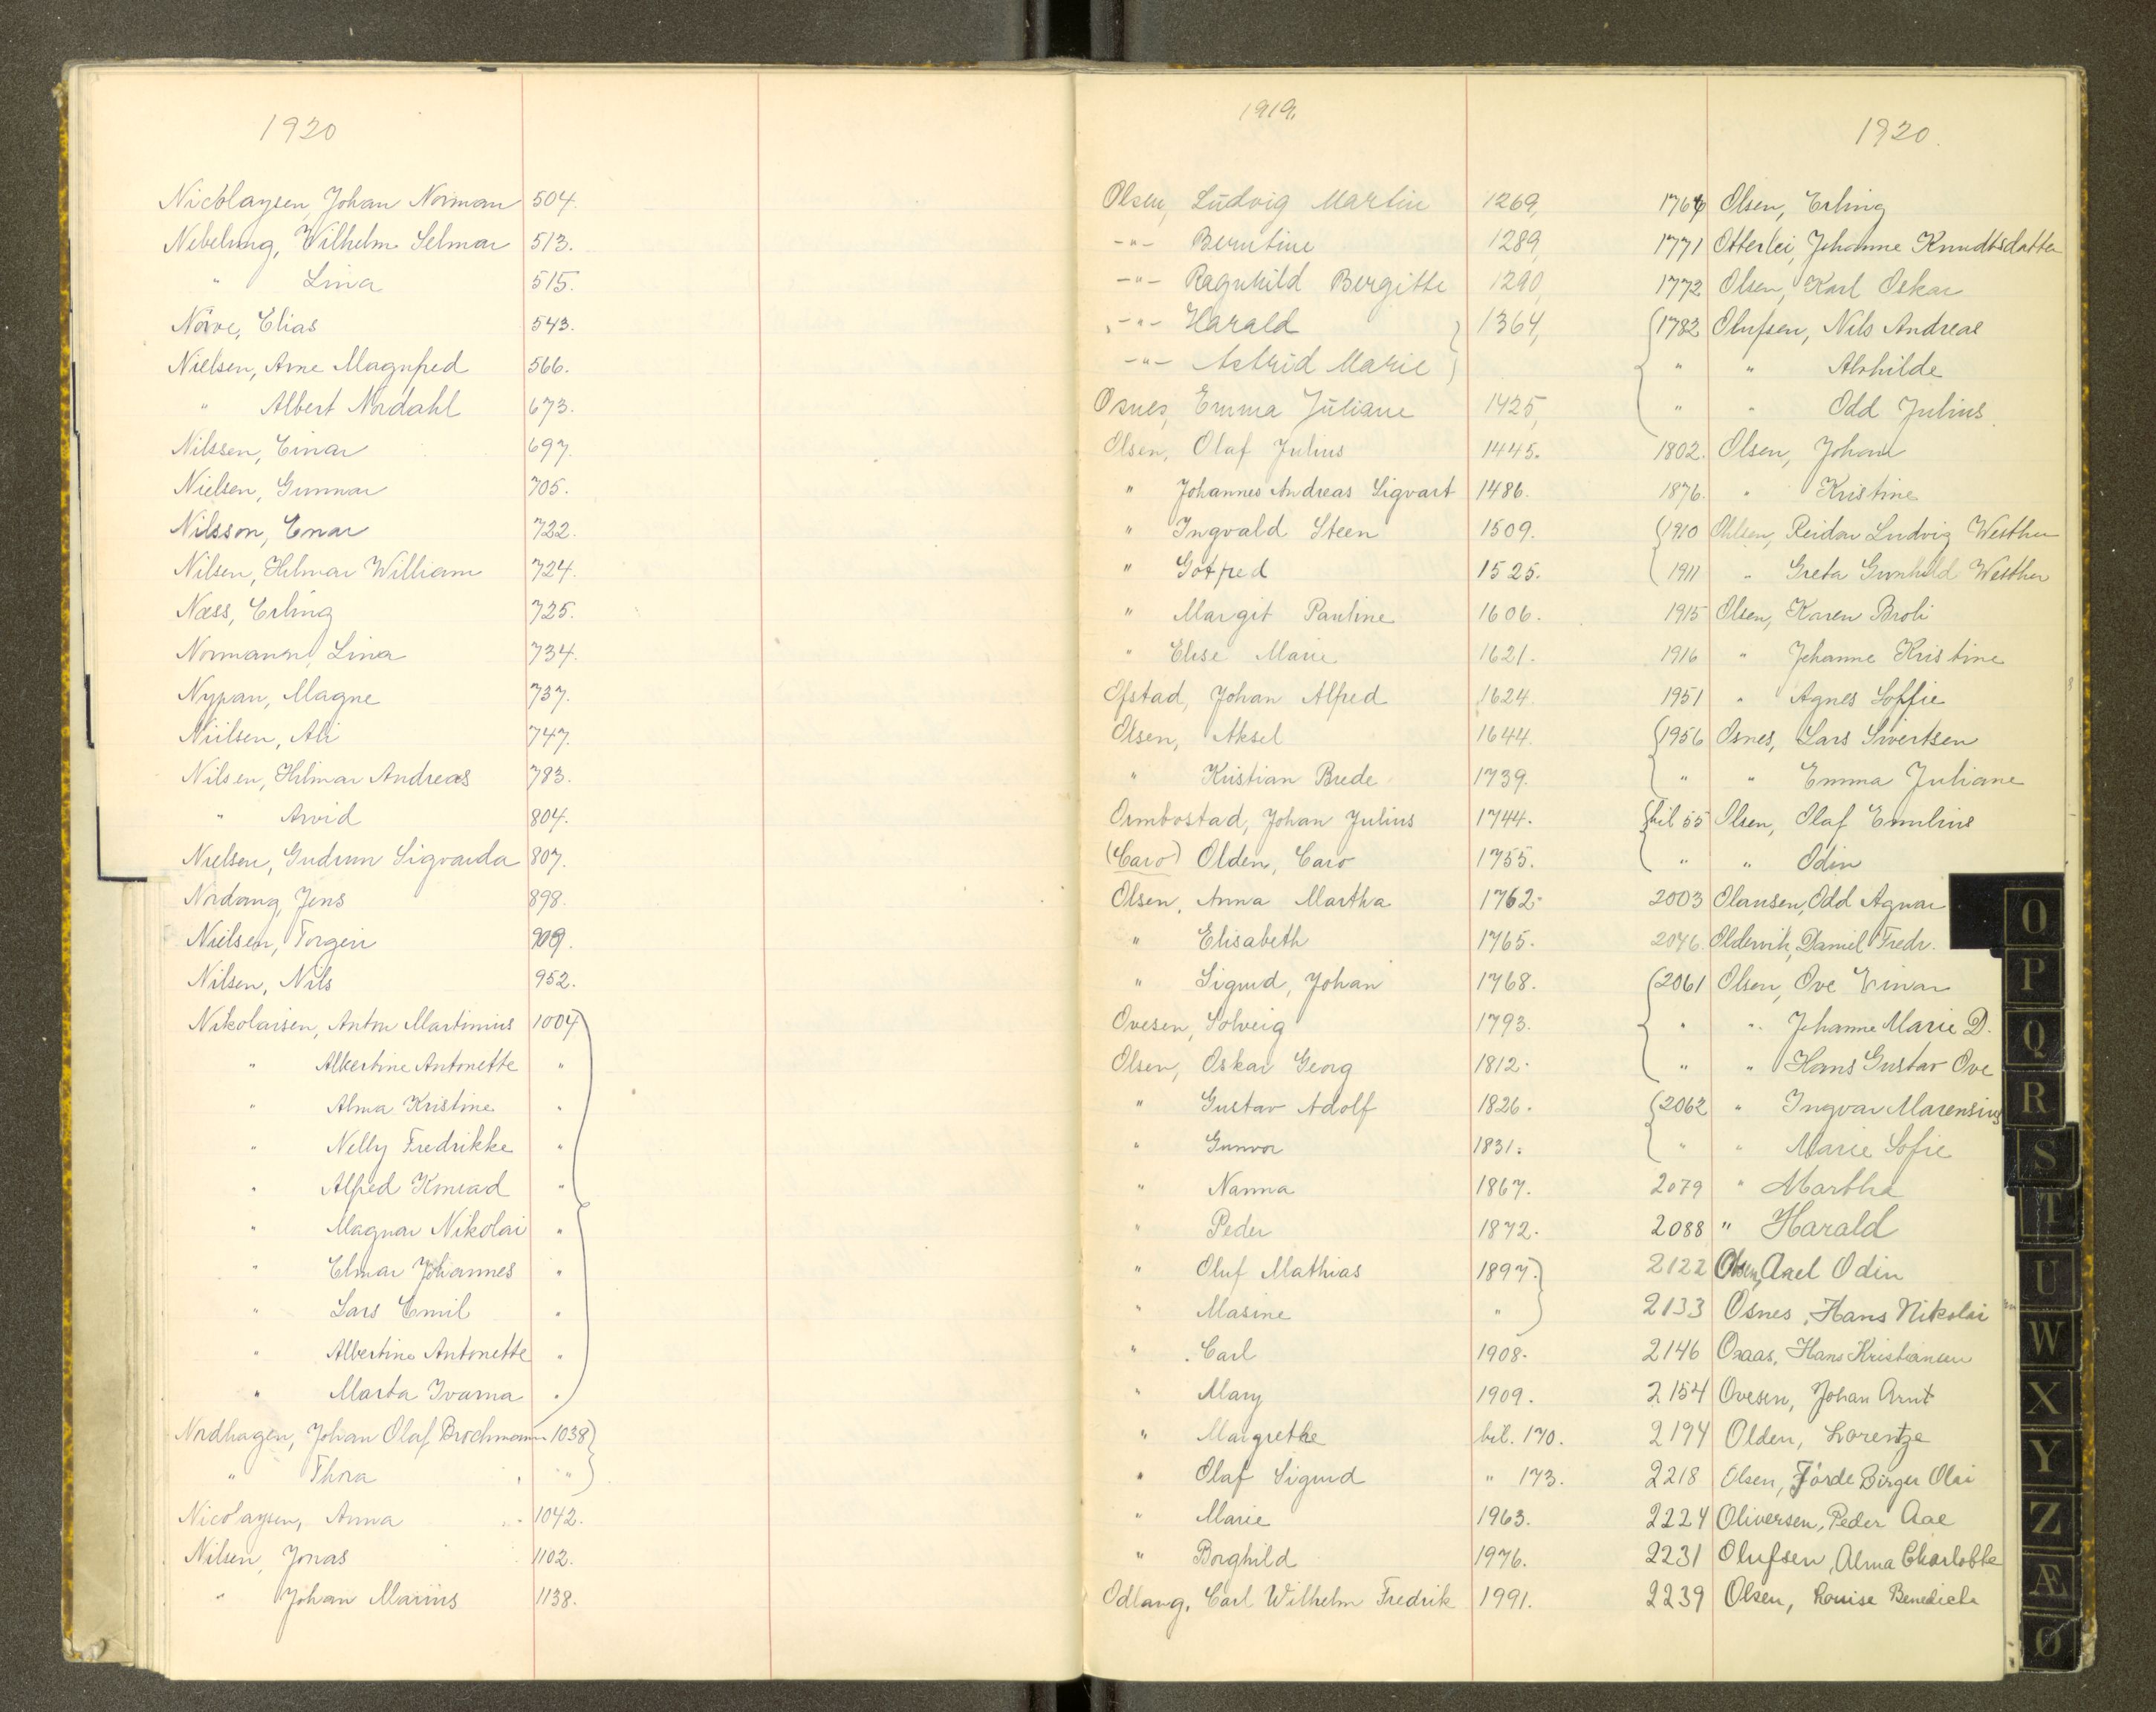 1920
Nicolaysen, Johan Norman 504.
Nebelung, Wilhelm Selmar 513.
" Lina 515.
Nörve, Elias 543.
Nielsen, Arne Magnfred 566.
" Albert Nordahl 673.
Nilssen, Einar 697.
Nielsen, Gunnar 705.
Nilsson, Enar 722.
Nilsen, Hilmar William 724.
Næss, Erling 725.
Normann, Lina 734.
Nypan, Magne 737.
Niilsen, Ali 747.
Nilsen, Hilmar Andreas 783.
" Arvid 804.
Nielsen, Gudrun Sigvarda 807.
Nordang, Jens 898.
Nielsen, Torgeir 909.
Nilsen, Nils 952.
Nikolaisen, Anton Martinius 1004
" Albertine Antonette "
" Alma Kristine "
" Nelly Fredrikke "
" Alfred Konrad "
" Magnar Nikolai "
" Elmar Johannes "
" Lars Emil "
" Albertine Antonette "
" Marta Ivarna "
Nordhagen, Johan Olaf Brochmann 1038
" Thora "
Nicolaysen, Anna 1042.
Nilsen, Jonas 1102.
" Johan Marius 1138.
1919.
Olsen, Ludvig Martin 1269,
-"- Berntine 1289,
-"- Ragnhild Bergitte 1290,
-"- Harald 1364,
-"- Astrid Marie
Osnes, Emma Juliane 1425,
Olsen, Olaf Julius 1445.
" Johannes Andreas Sigvart 1486.
" Ingvald Steen 1509.
" Gotfred 1525.
" Margit Pauline 1606.
" Elise Marie 1621.
Ofstad, Johan Alfred 1624.
Olsen, Aksel 1644.
" Kristian Brede 1739.
Ormbostad, Johan Julius 1744.
(Caro) Olden, Caro 1755.
Olsen, Anna Martha 1762.
" Elisabeth 1765.
" Sigurd, Johan 1768.
Ovesen, Solveig 1793.
Olsen, Oskar Georg 1812.
" Gustav Adolf 1826.
" Gunvor 1831.
" Nanna 1867.
" Peder 1872.
" Oluf Mathias 1897.
" Masine "
" Carl 1908.
" Mary 1909.
" Margrethe bil. 170.
" Olaf Sigurd " 173.
" Marie 1963.
" Borghild 1976.
Odlang, Carl Wilhelm Fredrik 1991.
1920.
1766 Olsen, Erling
1771 Otterlei, Johanne Knudtsdatter
1772 Olsen, Karl Oskar
1782 Olufsen, Nils Andreas
" " Alvhilde
" " Odd Julius
1802. Olsen, Johan
1876. " Kristine
1910 Ohlsen, Reidar Ludvig Westher
1911 " Greta Gunhild Westher
1915 Olsen, Karen Broli
1916 " Johanne Kristine
1951 " Agnes Soffie
1956 Osnes, Lars Sivertsen
" " Emma Juliane
bil 55 Olsen, Olaf Emilius
" " Odin
2003 Olausen, Odd Agnar
2046. Oldervik, Daniel Fredr.
2061 Olsen, Ove Einar
" " Johanne Marie D.
" " Hans Gustav Ove
2062 " Ingvar Marensius
" " Marie Sofie
2079 " Martha
2088 " Harald
2122 Olsen, Axel Odin
2133 Osnes, Hans Nikolai
2146 Oraas, Hans Kristiansen
2154 Ovesen, Johan Arnt
2194 Olden, Lorentze
2218 Olsen, Jörde Birger Olai
2224 Oliversen, Peder Aae
2231 Olufsen, Alma Charlotte
2239 Olsen, Louise Benedicte
O
P
Q
R
S
T
U
W
X
Y
Z
Æ
Ø